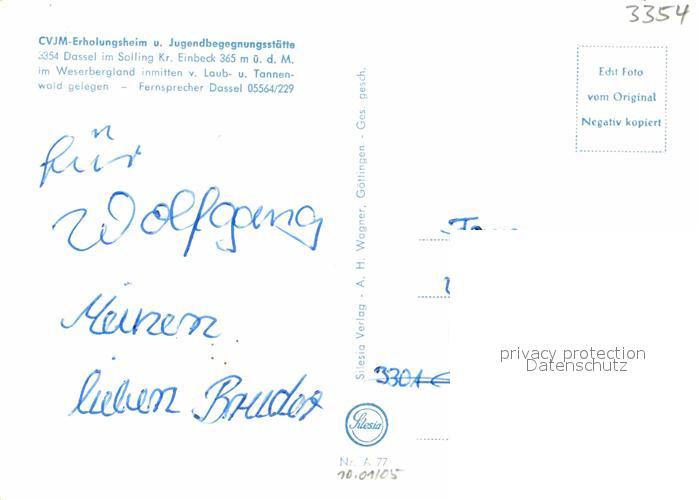 3354
CVJM-Erholungsheim u. Jugendbegegnungsstätte
3354 Dassel im Solling Kr. Einbeck 365 m ü. d. M.
im Weserbergland inmitten v. Laub- u. Tannen-
wald gelegen – Fernsprecher Dassel 05564/229
Edit Foto
vom Original
Negativ kopiert
für
Wolfgang
Meinem
lieben Bruder
Silesia Verlag - A. H. Wagner, Göttingen - Ges. gesch.
3301
privacy protection
Datenschutz
Silesia
Nr. A 77
10.01/05